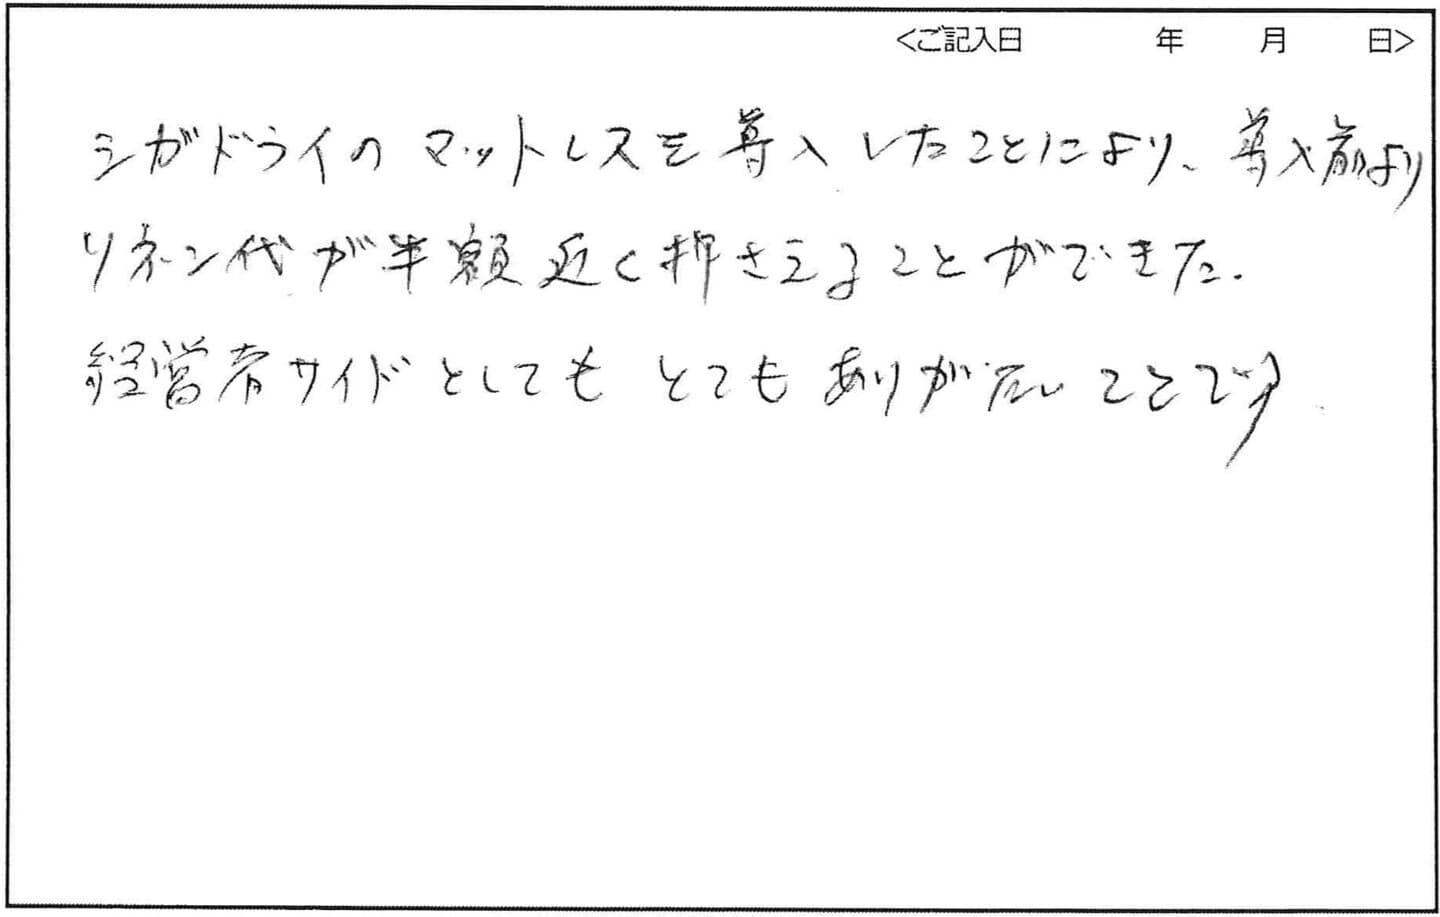 <ご記入日　　　年　　月　　日>
シガドライのマットレスを導入したことにより、導入前より
リネン代が半額近く押さえることができた.
経営者サイドとしてもとてもありがたいことです